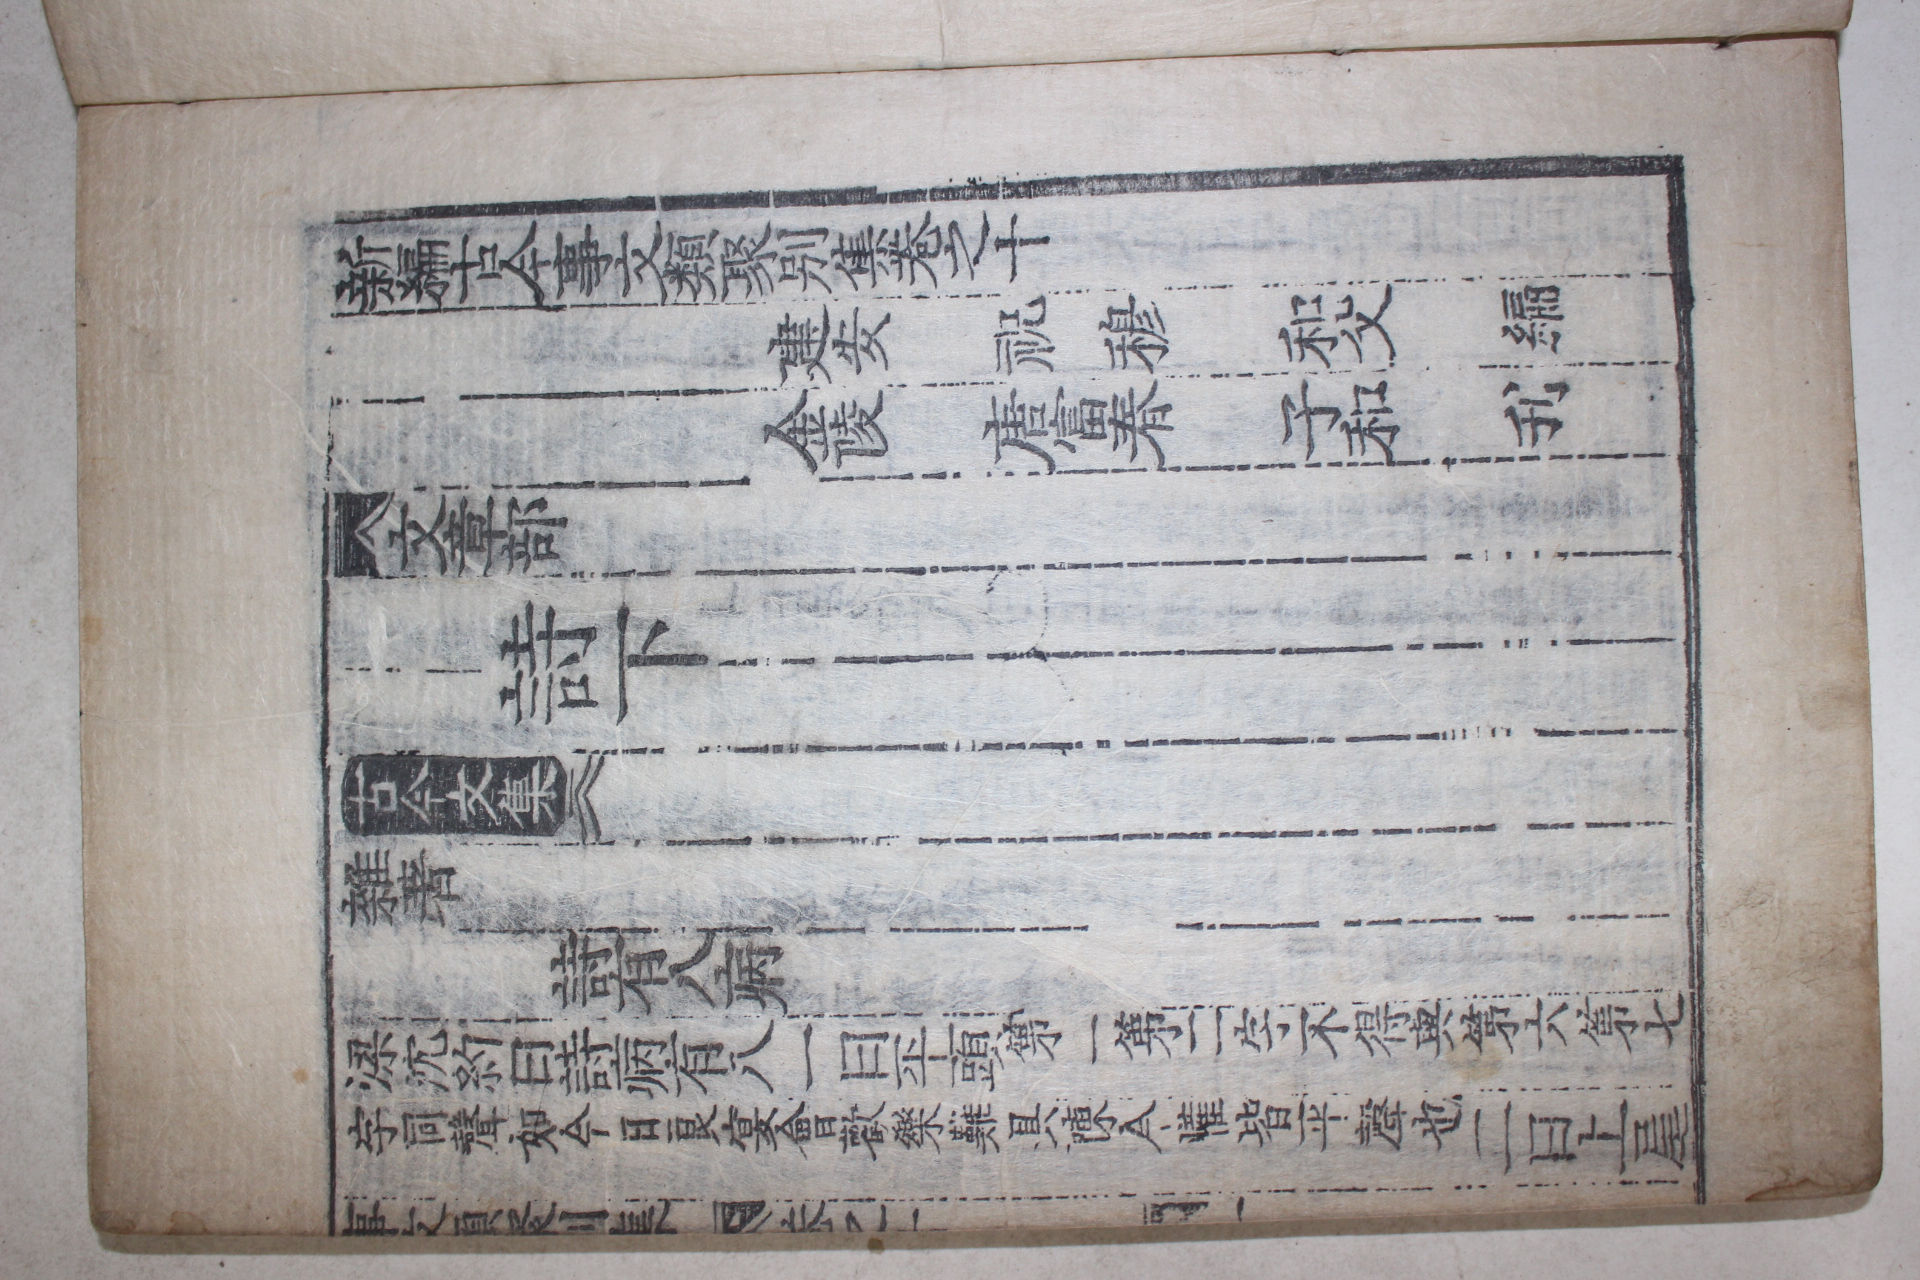 新編古今事文類聚別集卷之十
建安 祝穆 和父 編
金谿 唐富春 子和 刊
文章部
詩下
古今文集
雜著
詩有八病
梁沈約曰詩病有八一曰平頭第一第二字不得與第六第七
字同聲如今日良宴會歡樂難具陳今歡皆平聲也二曰上尾
事文類聚別集 卷之十 一